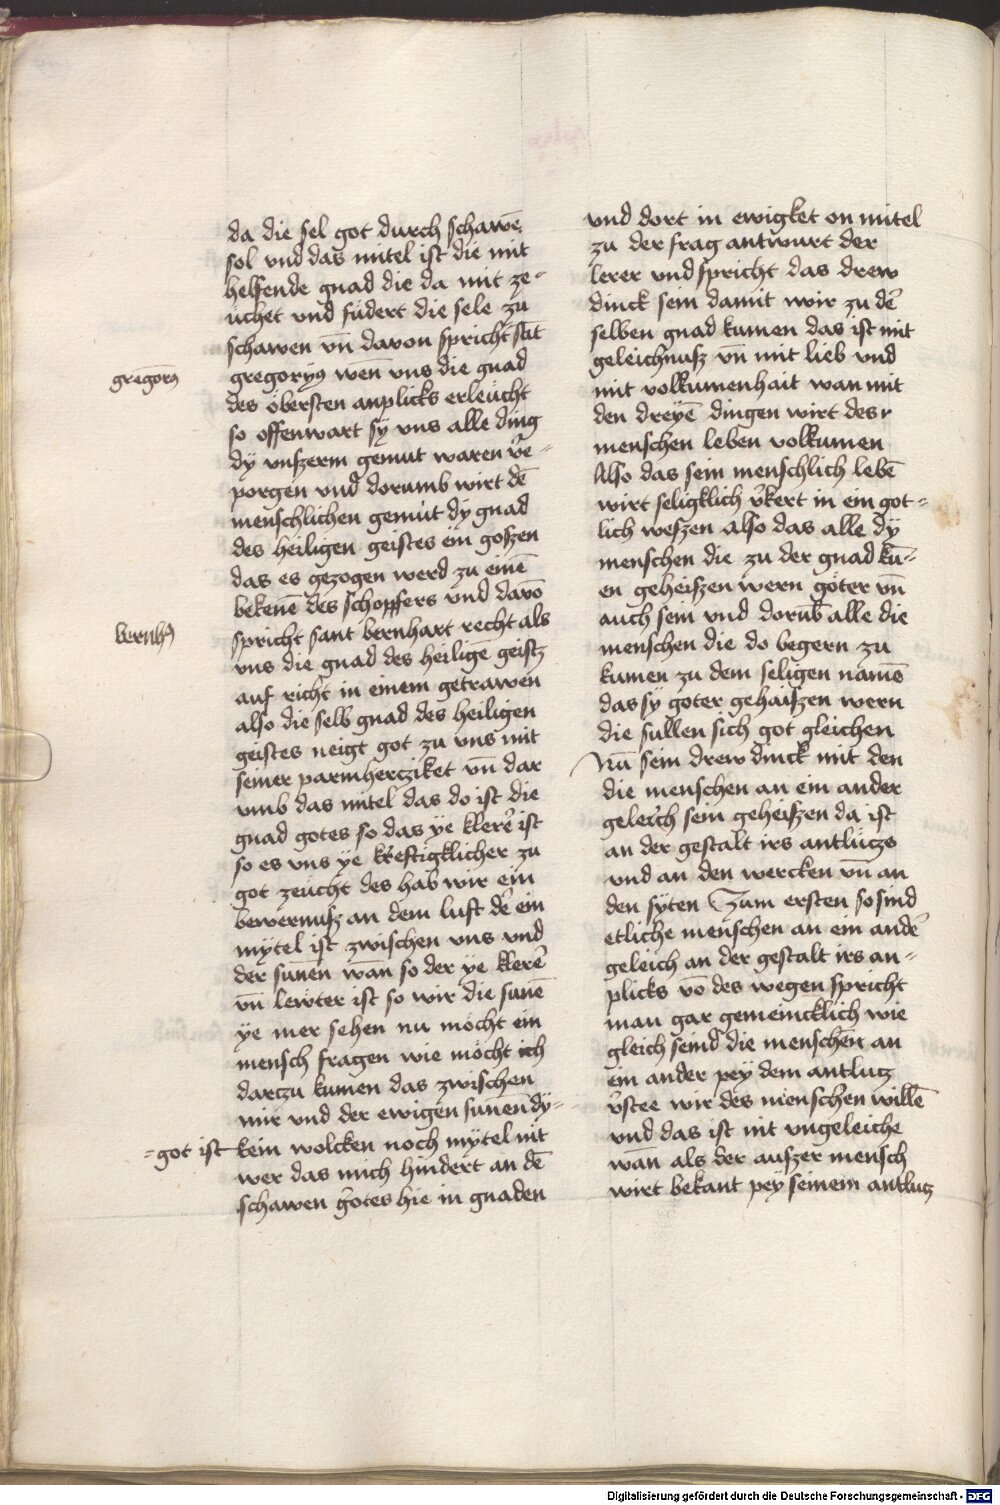 da die sel got durch schawē
sol vnd das mitel ist die mit
helfende gnad die da mit ze-
ucht vnd fudert die sele zu
schawen vn̄ davon spricht sāt
gregoriꝰ
gregoryꝰ wen̄ vns die gnad
des öbersten anplicks erleücht
so offenwart sy vns alle ding
dy vnszerm gemut waren v̄er-
porgen vnd dorumb wirt dē
menschlichen gemut dy gnad
des heiligen geistes ein goszen
das es gezogen werd zu einē
bekenē des schopffers vnd davō
bernhꝰ
spricht sant bernhart recht als
vns die gnad des heiligē geistz
auf richt in einem getrawen
also die selb gnad des heiligen
geistes neigt got zu vns mit
seiner parmhercziket vn̄ dar
vmb das mitel das do ist die
gnad gotes so das ye klerer̄ ist
so es vns ye krefftigklicher zu
got zeücht des hab wir ein
bewernusz an dem luft der̄ ein
mytel ist zwischen vns vnd
der sunen wan̄ so der ye klerer̄
vn̄ lewter ist so wir die sunē
ye mer sehen nu möcht ein
mensch fragen wie möcht ich
darczu kumen das zwischen
mir vnd der ewigen sunen dy-
-got ist kein wolcken noch mytel nit
wer das mich hindert an dē
schawen gotes hie in gnaden
vnd dort in ewigket on mitel
zu der frag antwurt der
lerer vnd spricht das drew
dinck sein damit wir zu dē
selben gnad kumen das ist mit
geleichnusz vn̄ mit lieb vnd
mit volkumenhait wan mit
den dreyē dingen wirt des
menschen leben volkumen
Also das sein menschlich lebē
wirt seligklich v̄kert in ein got-
lich weszen also das alle dy
menschen die zu der gnad kū-
en geheiszen wern göter vn̄
auch sein vnd dorūb alle die
menschen die do begern zu
kumen zu dem seligen namē
das sy goter gehaiszen wern
die sullen sich got gleichen
Nū sein drew dinck mit den
die menschen an ein ander
geleich sein geheiszen da ist
an der gestalt irs antlüczs
vnd an den wercken vn̄ an
den syten Zum ersten so sind
etliche menschen an ein ander̄
geleich an der gestalt irs an-
plicks vō des wegen spricht
man gar gemeincklich wie
gleich seind die menschen an
ein ander pey dem antlucz
v̄stee wir des menschen willē
vnd das ist nit vngeleiche
wan̄ als der auszer mensch
wirt bekant pey seinem antlucz
Digitalisierung gefördert durch die Deutsche Forschungsgemeinschaft - DFG